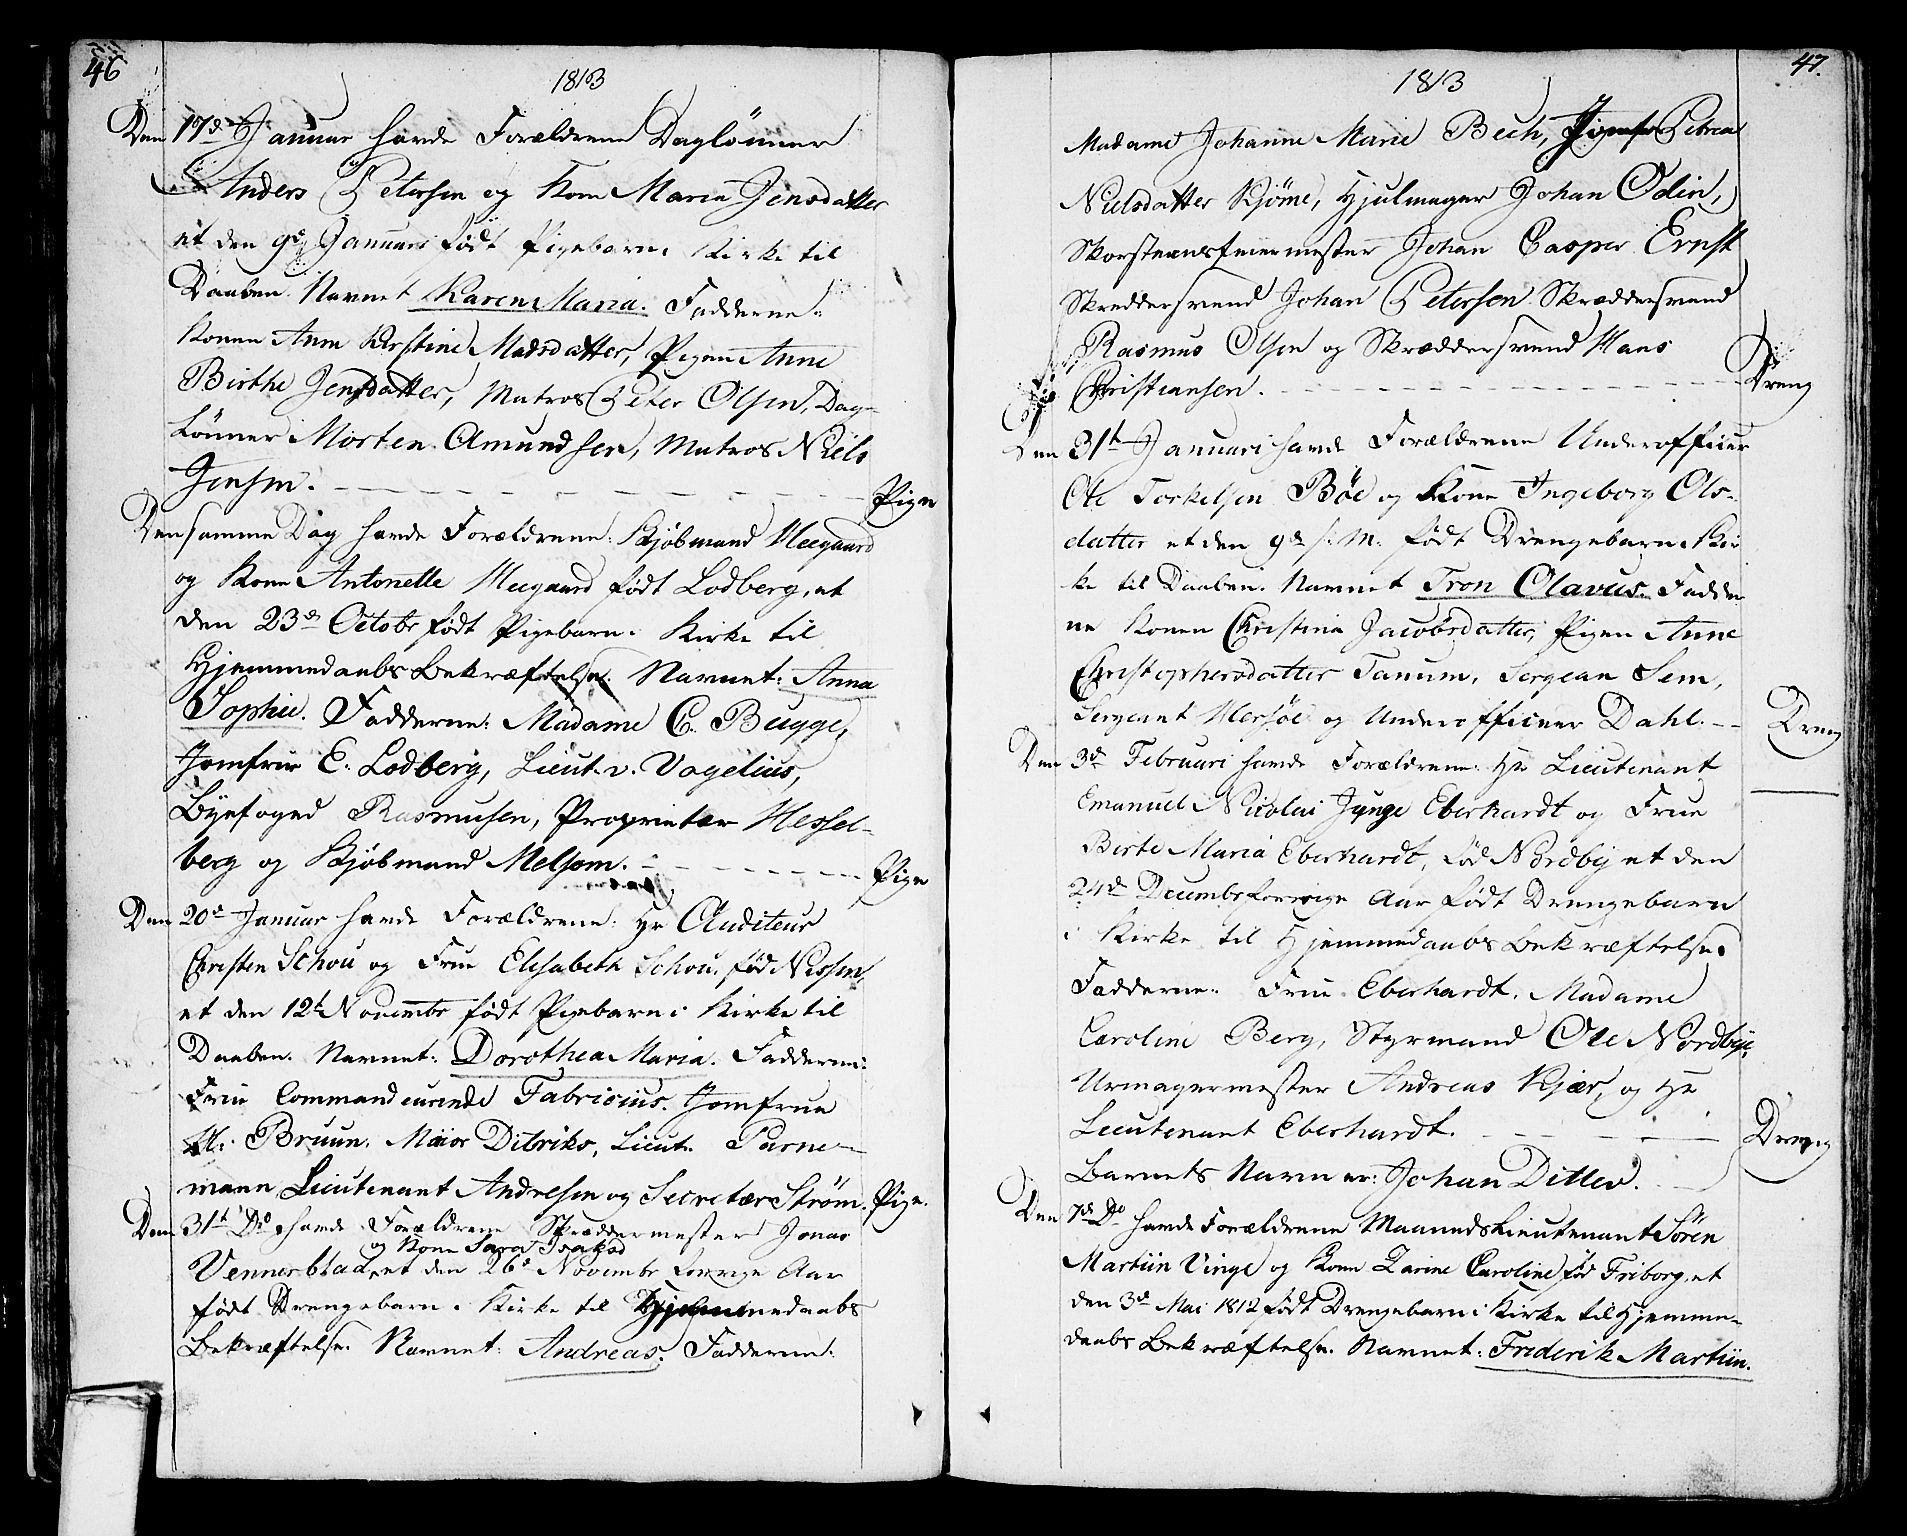 46
1813
Den 17d Januar havde Forældrene Daglönner
Anders Petersen og Kone Maria Jensdatter
et den 9d Januari födt Pigebarn i Kirke til
Daaben. Navnet Karen Maria. Fadderne:
Konen Anne Kirstine Madsdatter, Pigen Anne
Birthe Jensdatter, Matros Peter Olsen, Dag-
lönner Morten Amundsen, Matros Niels
Jensen. Pige
Den samme Dag havde Forældrene: Kjöbmand Heegaard
og Kone Antonette Heegaard födt Lodberg, et
den 23d Octobr födt Pigebarn i Kirke til
Hjemmedaabs Bekræftelse. Navnet: Anna
Sophie. Fadderne: Madame C. Bugge,
Jomfrue E. Lodberg, Lieut. v. Vogelius,
Byefoged Rasmusen, Proprietær Hessel-
berg og Kjöbmand Melsom. Pige
Den 20d Januar havde Forældrene: Hr Auditeur
Christen Schou og Frue Elisabeth Schou, föd Nissen,
et den 12t Novembr födt Pigebarn i Kirke til
Daaben. Navnet: Dorothea Maria. Fadderne:
Frue Commandeurinde Fabricius. Jomfrue
M. Bruun. Major Ditriks, Lieut. Parne-
mann Lieutenant Andresen og Secretær Ström. Pige.
Den 31t Do havde Forældrene Skræddermester Jonas
og Kone Sara Isaksd
Vennerblad, et den 26d Novembr forrige Aar
födt Drengebarn i Kirke til Hjemmedaabs
Bekræftelse. Navnet: Andreas. Fadderne:
47.
1813
Madame Johanne Marie Bech, Jomfr Petrea
Nielsdatter Kjöme, Hjulmager Johan Odin,
Skorsteensfeiermester Johan Casper Ernst
Skreddersvend Johan Petersen Skræddersvend
Rasmus Olsen og Skræddersvend Hans
Christiansen. Dreng
Den 31t Januari havde Forældrene Underofficeer
Ole Torkelsen Böe og Kone Ingeborg Ols-
datter et den 9d s: M. födt Drengebarn i Kir
ke til Daaben. Navnet Tron Olavus. Fadder
ne Konen Christina Jacobsdatter, Pigen Anne
Christophersdatter Tanum, Sergean Sem,
Sergeant Hersöe og Underofficeer Dahl. Dreng
Den 3d Februari havde Forældrene: Hr Lieutenant
Emanuel Nicolai Junge Eberhardt og Frue
Birte Maria Eberhardt, föd Nordby et den
24d Decembr forrige Aar födt Drengebarn
i Kirke til Hjemmedaabs Bekræftelse.
Fadderne: Frue Eberhardt. Madame
Caroline Berg, Styrmand Ole Nordbye,
Urmagermester Andreas Kjær, og Hr
Lieutenant Eberhardt. Dreng
Barnets Navn er: Johan Ditlev.
Den 7d Do havde Forældrene Maanedslieutenant Sören
Martiin Vinge og Kone Zarine Caroline föd Friborg, et
den 3d Mai 1812 födt Drengebarn i Kirke til Hjemme-
daabs Bekræftelse. Navnet: Friderik Martiin.